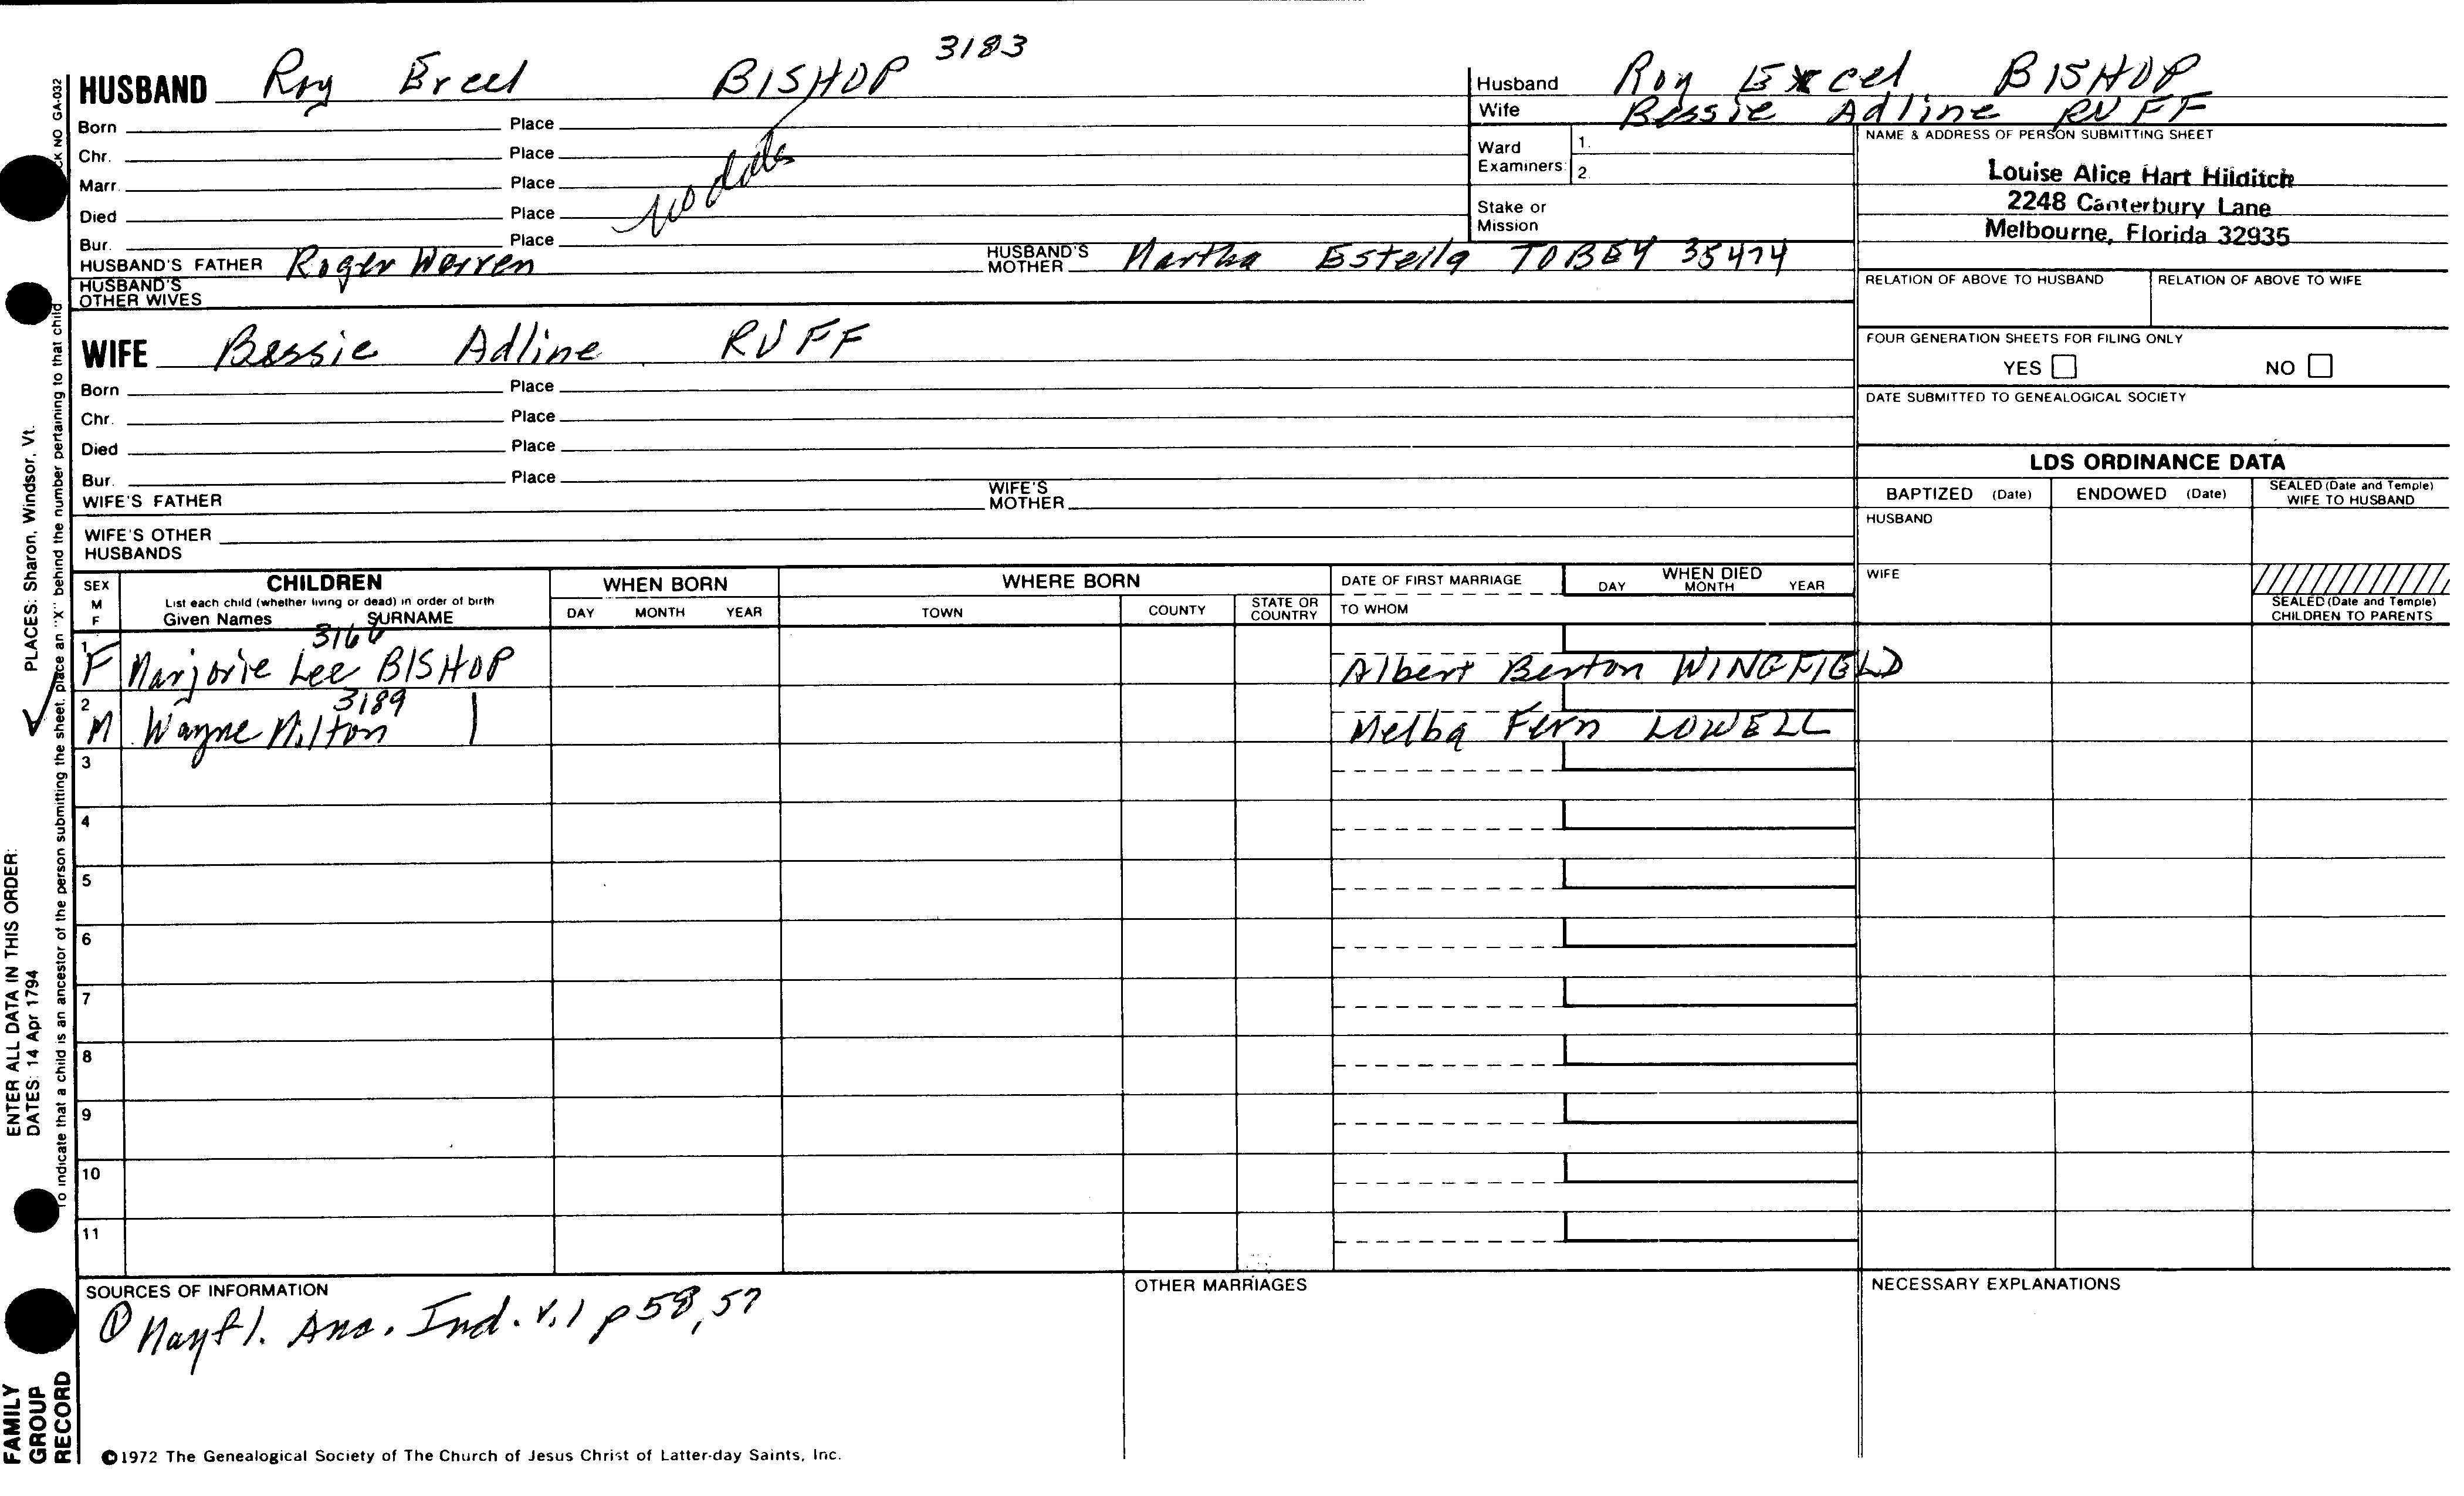 HUSBAND Roy Excel BISHOP 3183
Born Place
Chr. Place
Marr. Place
Died Place
Bur. Place
no dates
HUSBAND'S FATHER Roger Warren HUSBAND'S MOTHER Martha Estella TOBEY 35474
HUSBAND'S OTHER WIVES
WIFE Bessie Adline RUFF
Born Place
Chr. Place
Died Place
Bur. Place
WIFE'S FATHER WIFE'S MOTHER
WIFE'S OTHER HUSBANDS
Husband Roy Excel BISHOP
Wife Bessie Adline RUFF
Ward Examiners: 1. 2.
Stake or Mission
NAME & ADDRESS OF PERSON SUBMITTING SHEET
Louise Alice Hart Hilditch
2248 Canterbury Lane
Melbourne, Florida 32935
RELATION OF ABOVE TO HUSBAND RELATION OF ABOVE TO WIFE
FOUR GENERATION SHEETS FOR FILING ONLY
YES NO
DATE SUBMITTED TO GENEALOGICAL SOCIETY
LDS ORDINANCE DATA
BAPTIZED (Date) ENDOWED (Date) SEALED (Date and Temple) WIFE TO HUSBAND
HUSBAND
WIFE
SEALED (Date and Temple) CHILDREN TO PARENTS
SEX M F
CHILDREN
List each child (whether living or dead) in order of birth
Given Names SURNAME
WHEN BORN
DAY MONTH YEAR
WHERE BORN
TOWN COUNTY STATE OR COUNTRY
DATE OF FIRST MARRIAGE
TO WHOM
WHEN DIED
DAY MONTH YEAR
3166
1 F Marjorie Lee BISHOP Albert Berton WINGFIELD
3189
2 M Wayne Milton Melba Fern LOWELL
3
4
5
6
7
8
9
10
11
SOURCES OF INFORMATION
① Mayfl. Anc. Ind. v.1 p 58, 57
OTHER MARRIAGES
NECESSARY EXPLANATIONS
©1972 The Genealogical Society of The Church of Jesus Christ of Latter-day Saints, Inc.
FAMILY GROUP RECORD
ENTER ALL DATA IN THIS ORDER:
DATES: 14 Apr 1794
PLACES: Sharon, Windsor, Vt.
To indicate that a child is an ancestor of the person submitting the sheet, place an "X" behind the number pertaining to that child
CK NO GA-032